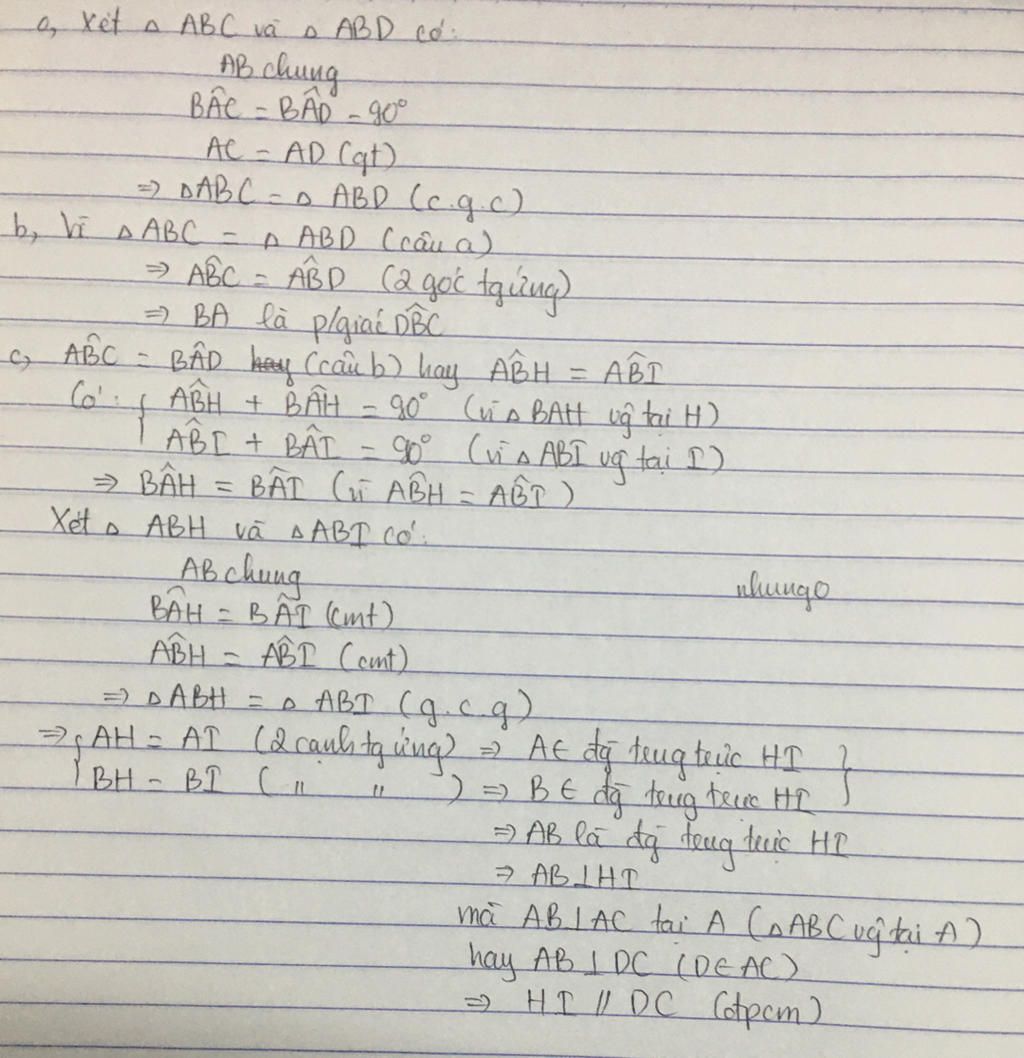 a, Xét △ ABC và △ ABD có:
AB chung
BÂC = BÂD = 90°
AC = AD (gt)
⇒ △ABC = △ ABD (c.g.c)
b, Vì △ABC = △ ABD (câu a)
⇒ AB̂C = AB̂D (2 góc tg ứng)
⇒ BA là p/giác DB̂C
c, AB̂C = BÂD (câu b) hay AB̂H = AB̂I
Có: { AB̂H + BÂH = 90° (vì △ BAH vg tại H)
AB̂I + BÂI = 90° (vì △ ABI vg tại I)
⇒ BÂH = BÂI (vì AB̂H = AB̂I)
Xét △ ABH và △ABI có:
AB chung
nhung0
BÂH = BÂI (cmt)
AB̂H = AB̂I (cmt)
⇒ △ABH = △ ABI (g.c.g)
⇒ { AH = AI (2 cạnh tg ứng) ⇒ A∈ đg trug trực HI }
BH = BI ( " " ) ⇒ B∈ đg trug trực HI
⇒ AB là đg trug trực HI
⇒ AB⊥HI
mà AB⊥AC tại A (△ABC vg tại A)
hay AB⊥DC (D∈AC)
⇒ HI // DC (đpcm)